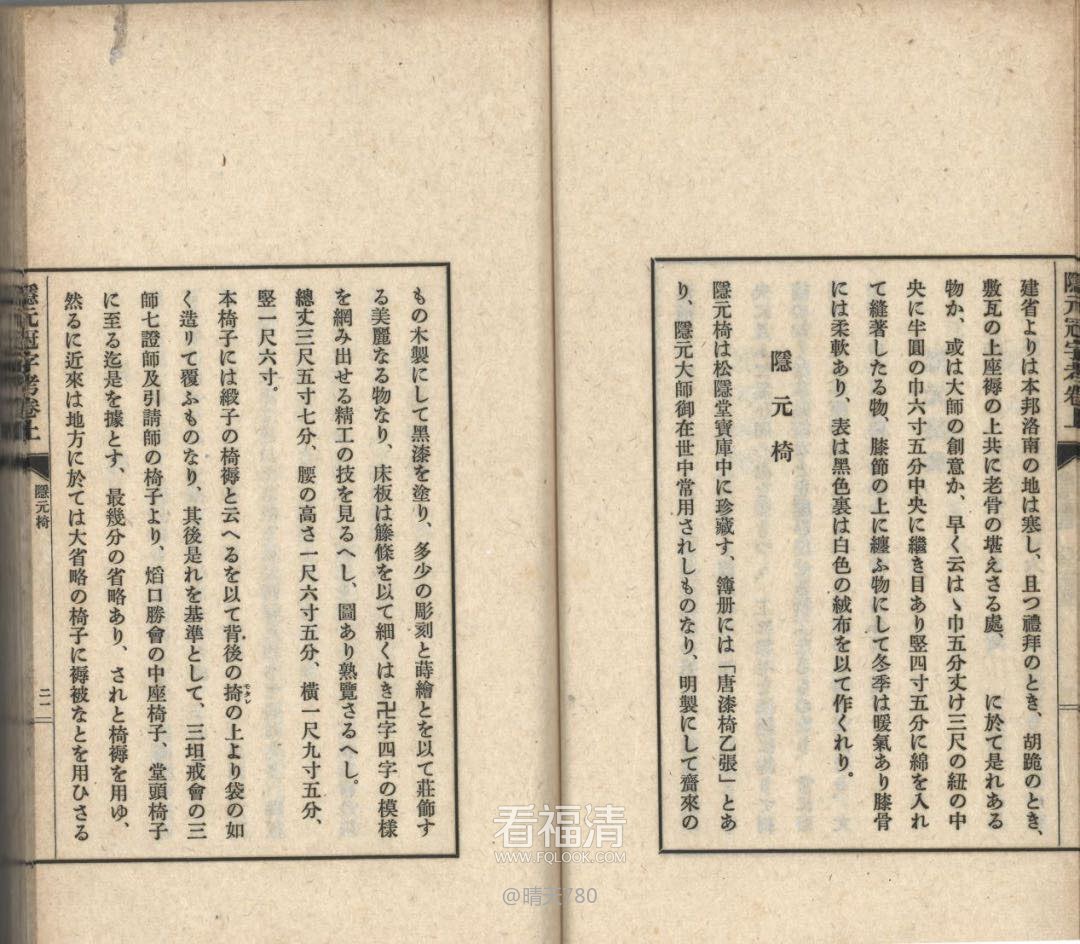 建省よりは本邦洛南の地は寒し、且つ禮拜のとき、胡跪のとき、
敷瓦の上座褥の上共に老骨の堪えさる處、　　に於て是れある
物か、或は大師の創意か、早く云はゝ巾五分丈け三尺の紐の中
央に半圓の巾六寸五分中央に繼き目あり竪四寸五分に綿を入れ
て縫著したる物、膝節の上に纏ふ物にして冬季は暖氣あり膝骨
には柔軟あり、表は黑色裏は白色の絨布を以て作くれり。
隱元椅
隱元椅は松隱堂寶庫中に珍藏す、簿册には「唐漆椅乙張」とあ
り、隱元大師御在世中常用されしものなり、明製にして齎來の
もの木製にして黑漆を塗り、多少の彫刻と蒔繪とを以て莊飾す
る美麗なる物なり、床板は籐條を以て細くはき卍字四字の模樣
を網み出せる精工の技を見るへし、圖あり熟覽さるへし。
總丈三尺五寸七分、腰の高さ一尺六寸五分、橫一尺九寸五分、
竪一尺六寸。
本椅子には緞子の椅褥と云へるを以て背後の掎モタレの上より袋の如
く造りて覆ふものなり、其後是れを基準として、三坦戒會の三
師七證師及引請師の椅子より、焰口勝會の中座椅子、堂頭椅子
に至る迄是を據とす、最幾分の省略あり、されと椅褥を用ゆ、
然るに近來は地方に於ては大省略の椅子に褥被なとを用ひさる
隱元冠字考卷上
隱元椅
二一
看福清
WWW.FQLOOK.COM
@晴天780